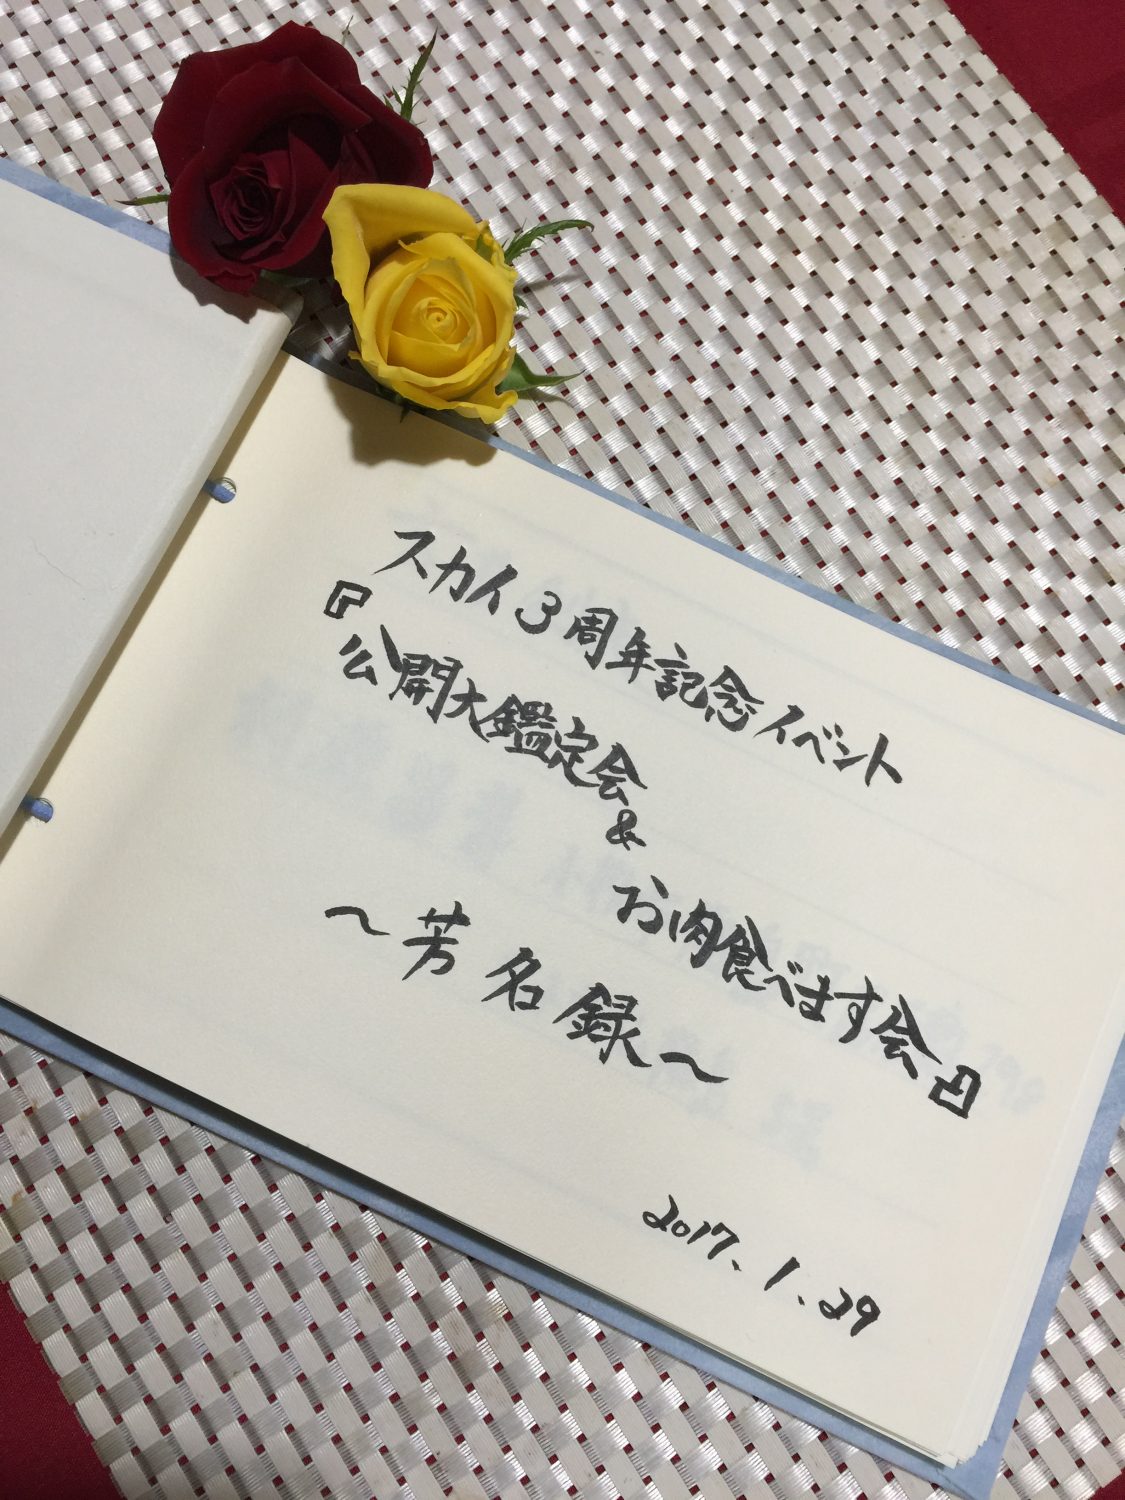 スカイ3周年記念イベント
『公開大鑑定会
&
お肉食べます会』
～芳名録～
2017.1.29